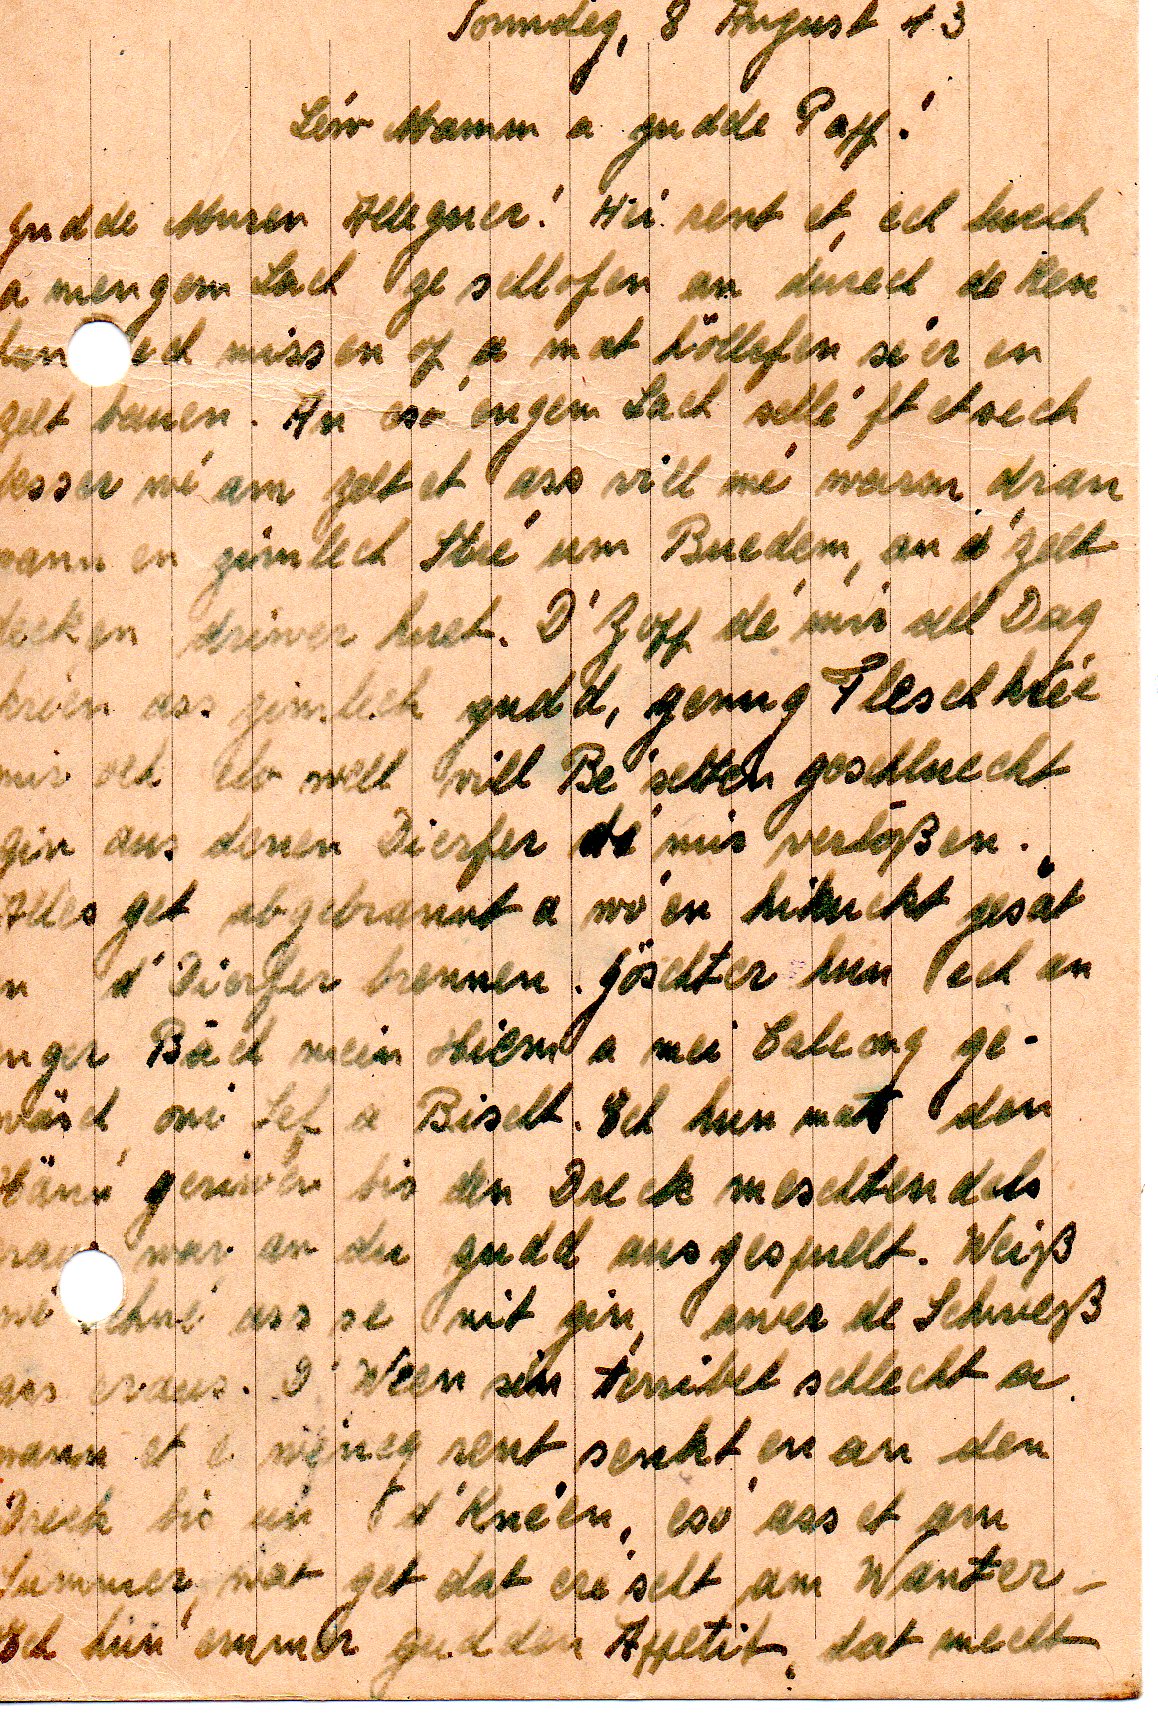 Sonndeg, 8 August 43
Léiw Mamm a gudde Papp!
Gudde Muren Alleguer! Hei rent et, ech
a mengem Lach geschlofen an duerch de Ren
hun ech missen op a mat höllefen séer en
Zelt bauen. An eso engem Lach schléift et sech
besser wé am Zelt et ass vill mé waarm dran
wann en zimlech Stré um Buedem, an d'Zelt
decken driwer huet. D'Zopp dé mir all Dag
kréen ass zimlech gudd, genug Fleschkrée
mir och well vill Béischten geschluecht
gin aus denen Dierfer dé mir verloßen.
Alles get abgebrannt a wo en hikuckt gesät
en d'Dierfer brennen. Göschter hun ech an
enger Bäch mein Hiem a mei Caleçong ge-
wäsch, oni Sef a Bischt. Ech hun mat den
Hänn geriwen bis den Dreck meschtendels
eraus war an du gudd ausgespullt. Weiß
wé Schné ass se nit gin, awer de Schweß
ass eraus. D'Ween sin terribel schlecht a
wann et e wéineg rent senkt en an den
Dreck bis un d'Knéen, eso ass et am
Summer, wat get dat eréischt am Wanter-
Ech hun ëmmer gudden Appetit, dat mecht